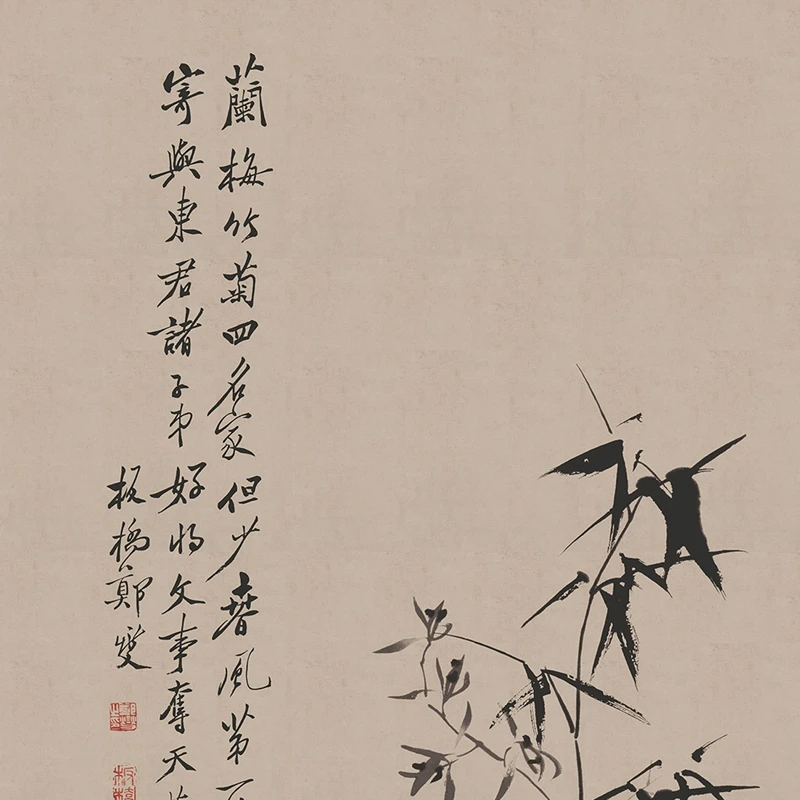 蘭梅竹菊四名家但少春風第一
寄與東君諸子弟好將文事奪天
板橋鄭燮